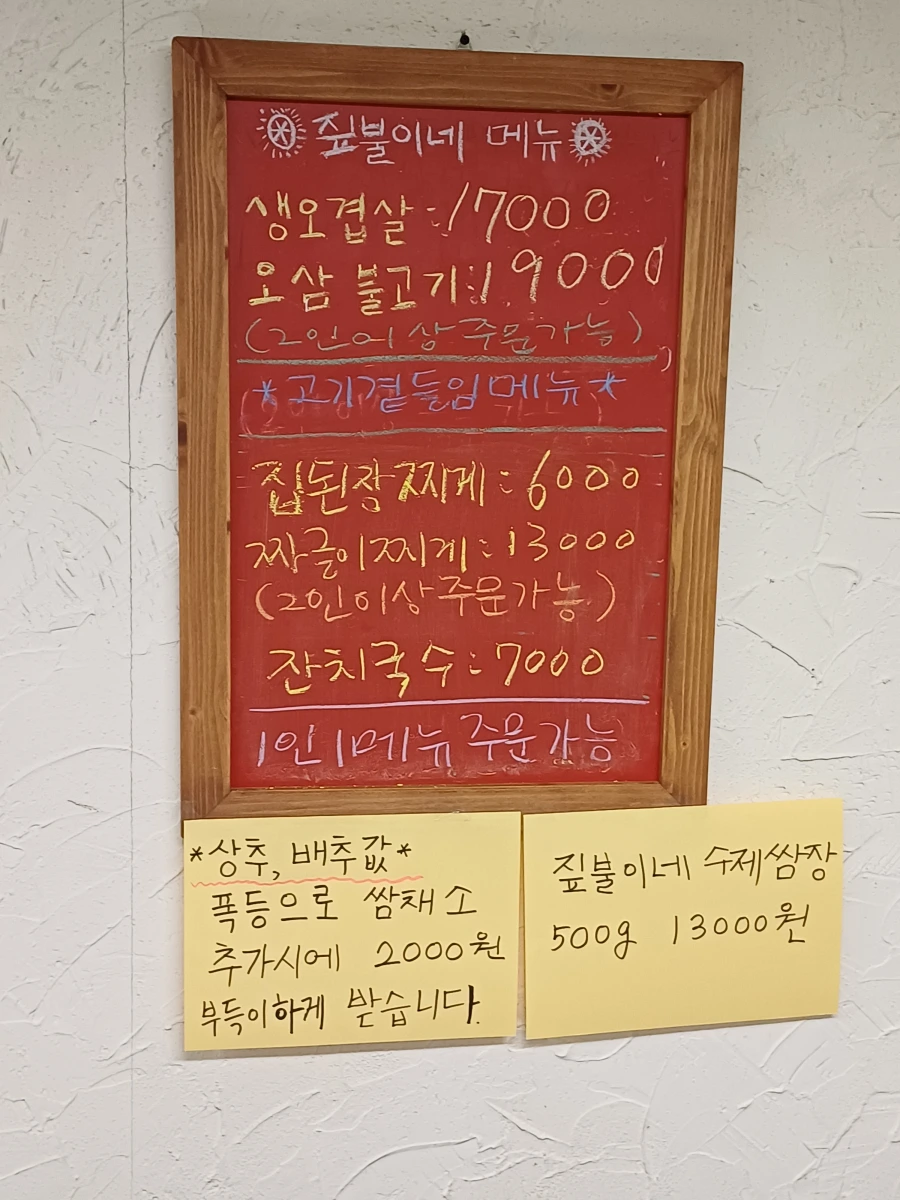 짚불이네 메뉴
생오겹살:17000
오삼 불고기:19000
(2인이상 주문가능)
*고기곁들임메뉴*
집된장찌게:6000
짜글이찌게:13000
(2인이상주문가능)
잔치국수:7000
1인1메뉴 주문가능
*상추, 배추값*
폭등으로 쌈채소
추가시에 2000원
부득이하게 받습니다.
짚불이네 수제쌈장
500g 13000원